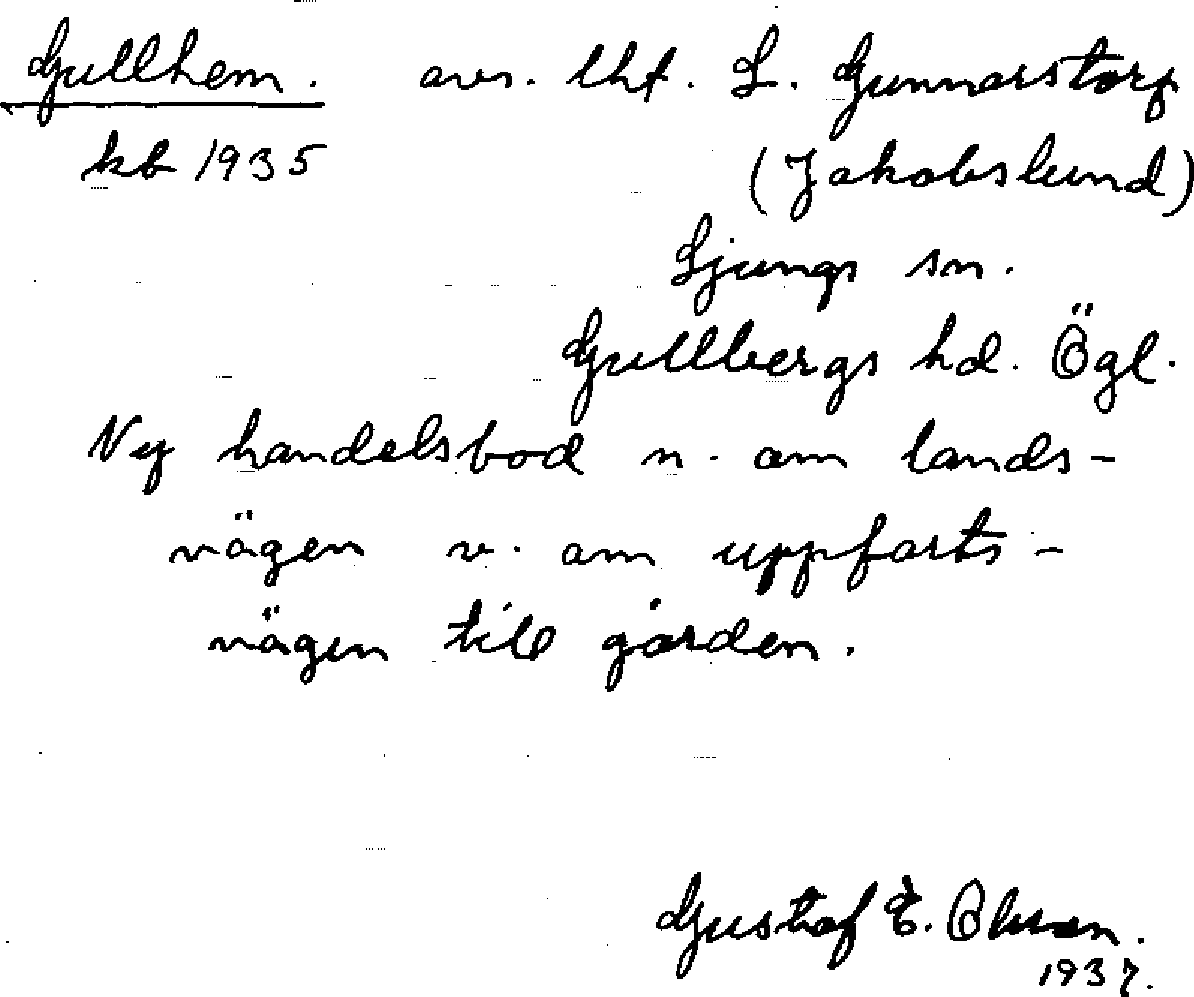 Gullhem. avs. lht. L. Gunnarstorp
kb 1935 (Jakobslund)
Ljungs sn.
Gullbergs hd. Ögl.
Ny handelsbod n. om lands-
vägen v. om uppfarts-
vägen till gården.
Gustaf E. Olsson.
1937.